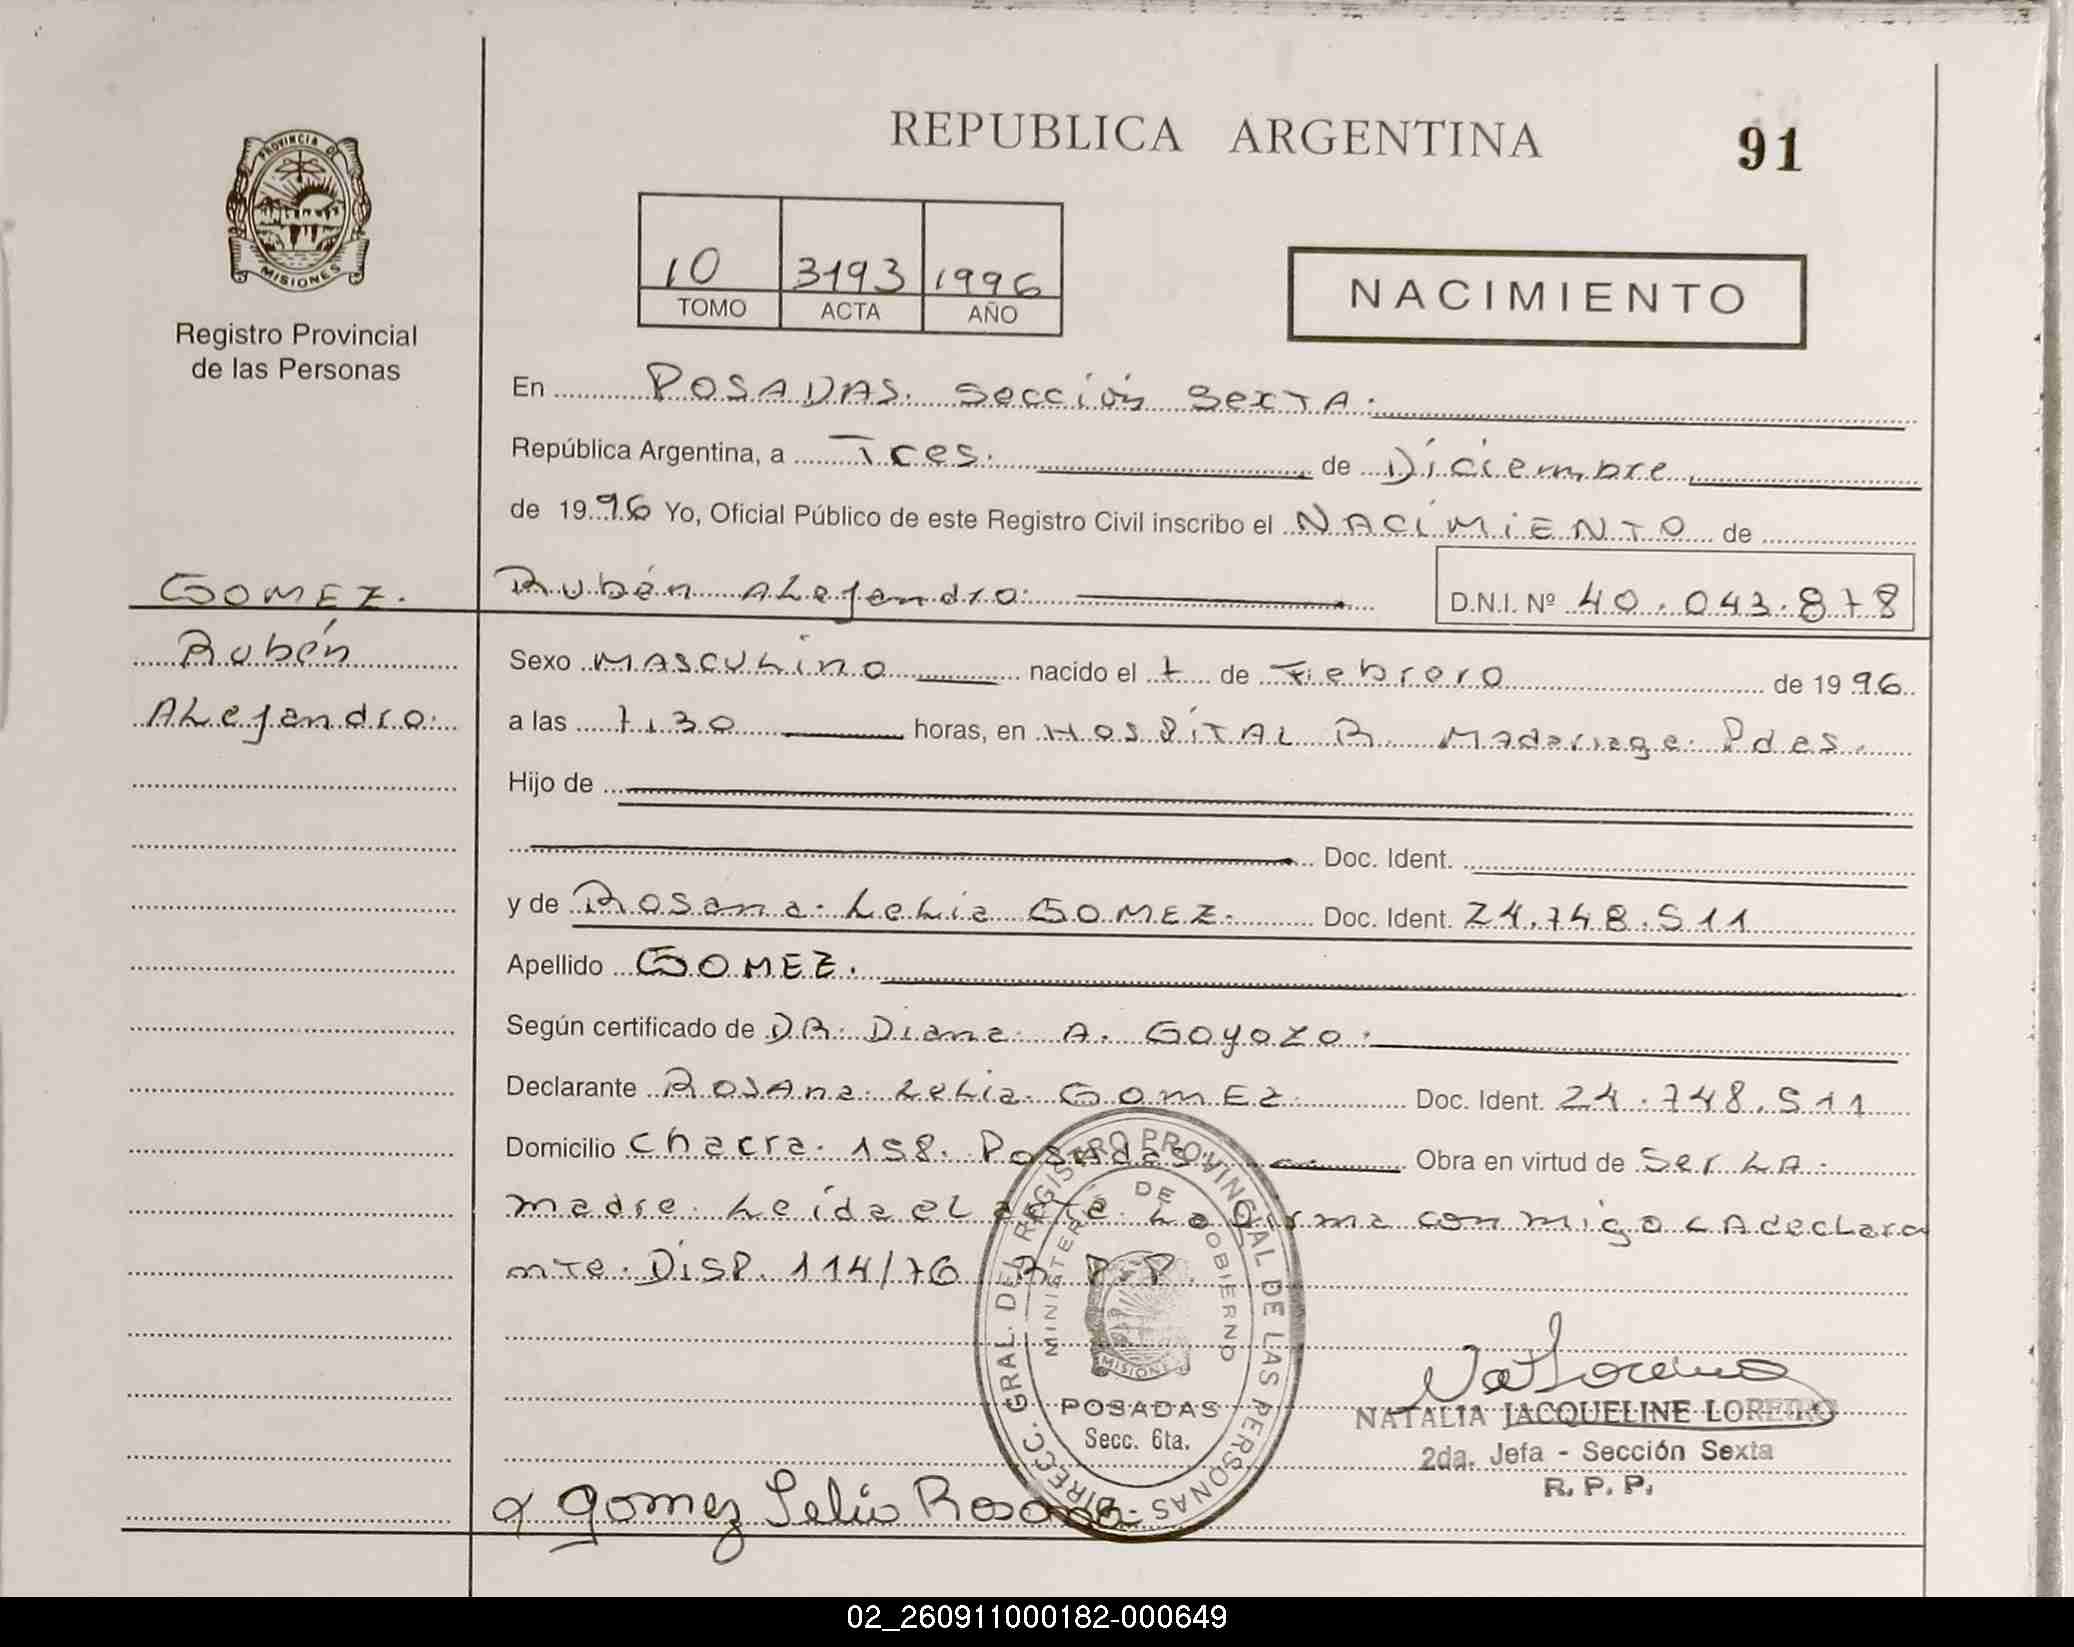 REPUBLICA ARGENTINA
91
PROVINCIA DE
MISIONES
Registro Provincial
de las Personas
10 3193 1996
TOMO ACTA AÑO
NACIMIENTO
En POSADAS. Sección Sexta.
República Argentina, a Tres. de Diciembre
de 1996 Yo, Oficial Público de este Registro Civil inscribo el NACIMIENTO de
GOMEZ.
Rubén Alejandro.
Rubén Alejandro. D.N.I. Nº 40.043.878
Sexo Masculino nacido el 7 de Febrero de 1996
a las 7.30 horas, en HOSPITAL R. Madariaga. Pdas.
Hijo de
Doc. Ident.
y de Rosana. Lelia GOMEZ. Doc. Ident. 24.748.511
Apellido GOMEZ.
Según certificado de DR. Diana. A. Goyozo.
Declarante Rosana. Lelia. GOMEZ. Doc. Ident. 24.748.511
Domicilio Chacra. 158. Posadas. Obra en virtud de Ser LA.
madre. Leida el acta La Firma conmigo LA declara
nte. DISP. 114/76 R.P.P.
DIRECC. GRAL. DEL REGISTRO PROVINCIAL DE LAS PERSONAS
MINISTERIO DE GOBIERNO
MISIONES
POSADAS
Secc. 6ta.
NATALIA JACQUELINE LOREIRO
2da. Jefa - Sección Sexta
R. P. P.
Gomez Lelia Rosana
02_260911000182-000649